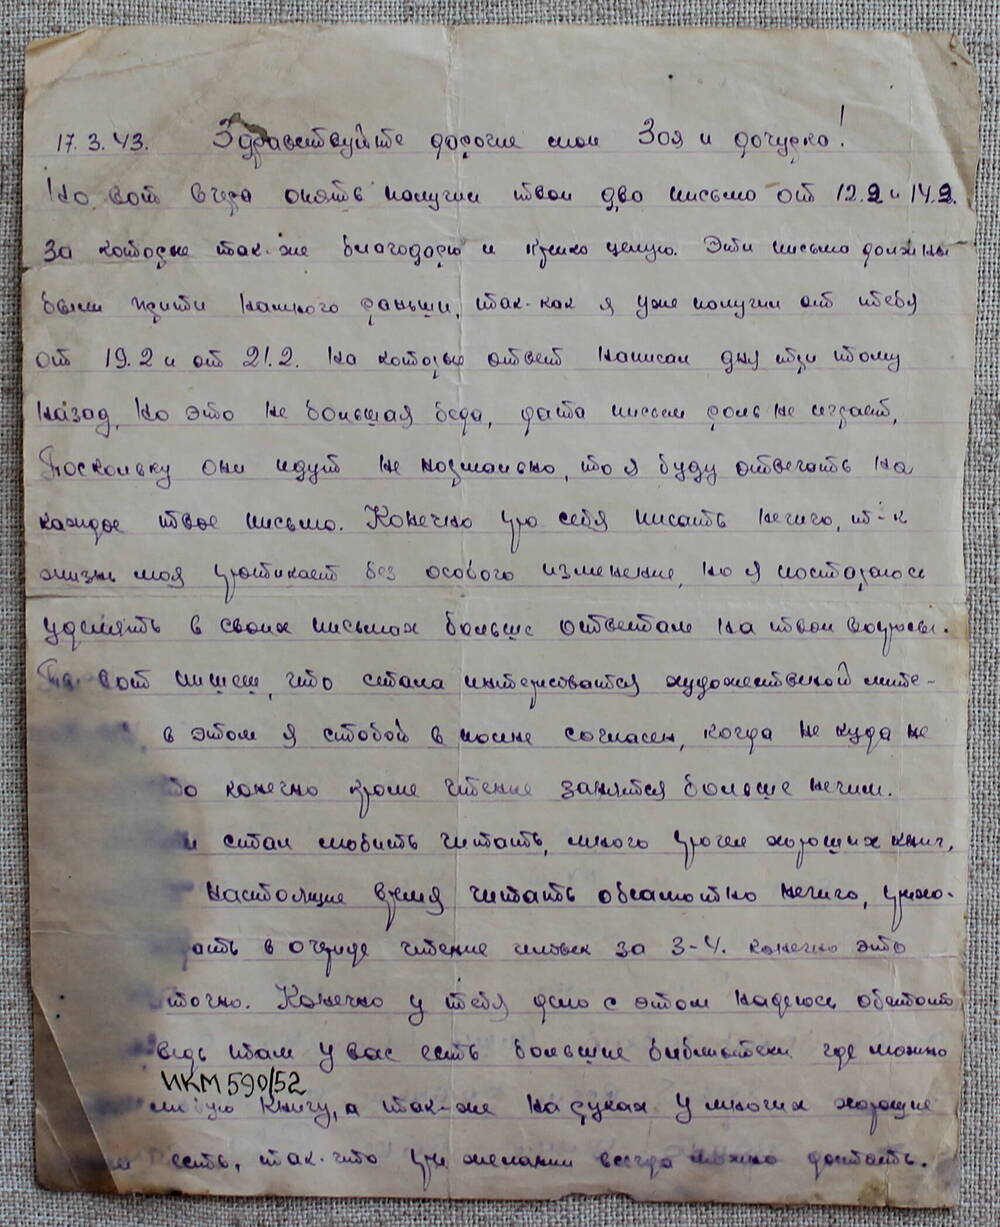 17.3.43. Здравствуйте дорогие мои Зоя и дочурка!
Но вот вчера опять получил твои два письма от 12.2 и 14.2.
За которые так-же благодарю и крепко целую. Эти письма должны
были прити намного раньши, так-как я уже получил от тебя
от 19.2 и от 21.2. на которые ответ написал дня три тому
назад, но это не большая беда, дата писем роль не играет,
Поскольку они идут не нормально, то я буду отвечать на
каждое твое письмо. Конечно про себя писать нечиго, т-к
жизнь моя протикает без особого изменение, но я постараюсь
уделять в своих письмах больше ответам на твои вопросы.
вот пишеш, что стала интересоватся художественой лите-
в этом я стобой в полне согласен, когда не куда не
то конечно кроме чтение занятся больше нечим.
и стал любить читать, много прочел хороших книг,
настоящие время читать обсалютно нечиго, прихо-
в очереде чтение человек за 3-4. конечно это
точно. Конечно у тебя дело с этом надеюсь обстоит
ведь там у вас есть большие библиотеки где можно
ИКМ 590/52
любую книгу, а так-же на руках у многих хорошие
есть, так-что при желании всегда можно достать.